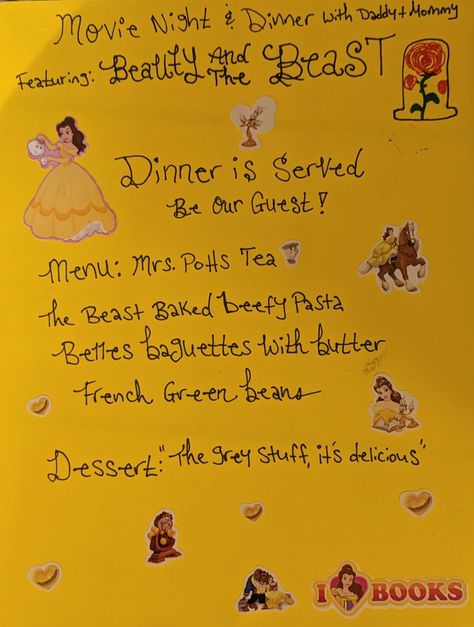 Movie Night & Dinner with Daddy + Mommy
Featuring: Beauty And The Beast
Dinner is Served
Be Our Guest!
Menu: Mrs. Potts Tea
The Beast Baked beefy Pasta
Belles baguettes with butter
French Green beans
Dessert: "The grey stuff, it's delicious"
I BOOKS